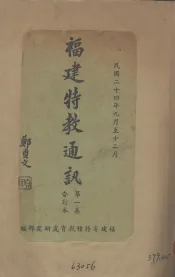 民國二十四年九月至十二月
福建特教通訊
第一卷
合訂本
鄭貞文
福建省特種教育處研究部編
63056